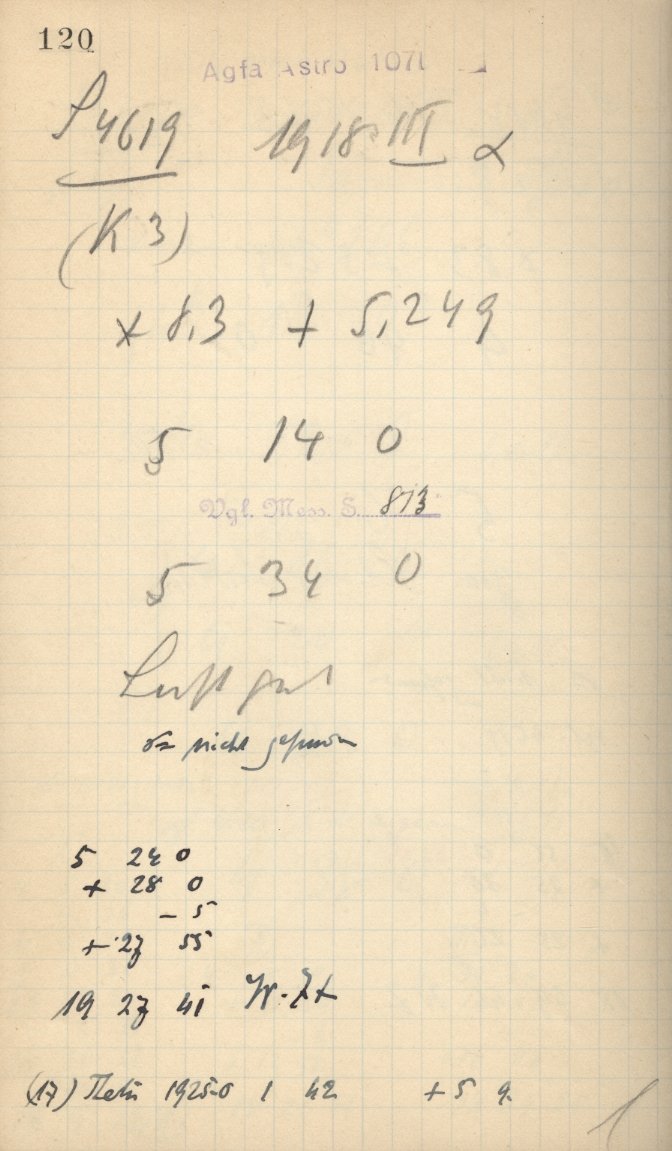 120
Agfa Astro 1071
S 4619 1918 III α
(K 3)
* 8,3 + 5,249
5 14 0
Vgl. Mess. S. 813
5 34 0
Luft gut
nicht gefunden
5 24 0
+ 28 0
- 5
+ 27 55
19 27 41 W.Zt
(17) Thetis 1925.0 1 42 + 5 9